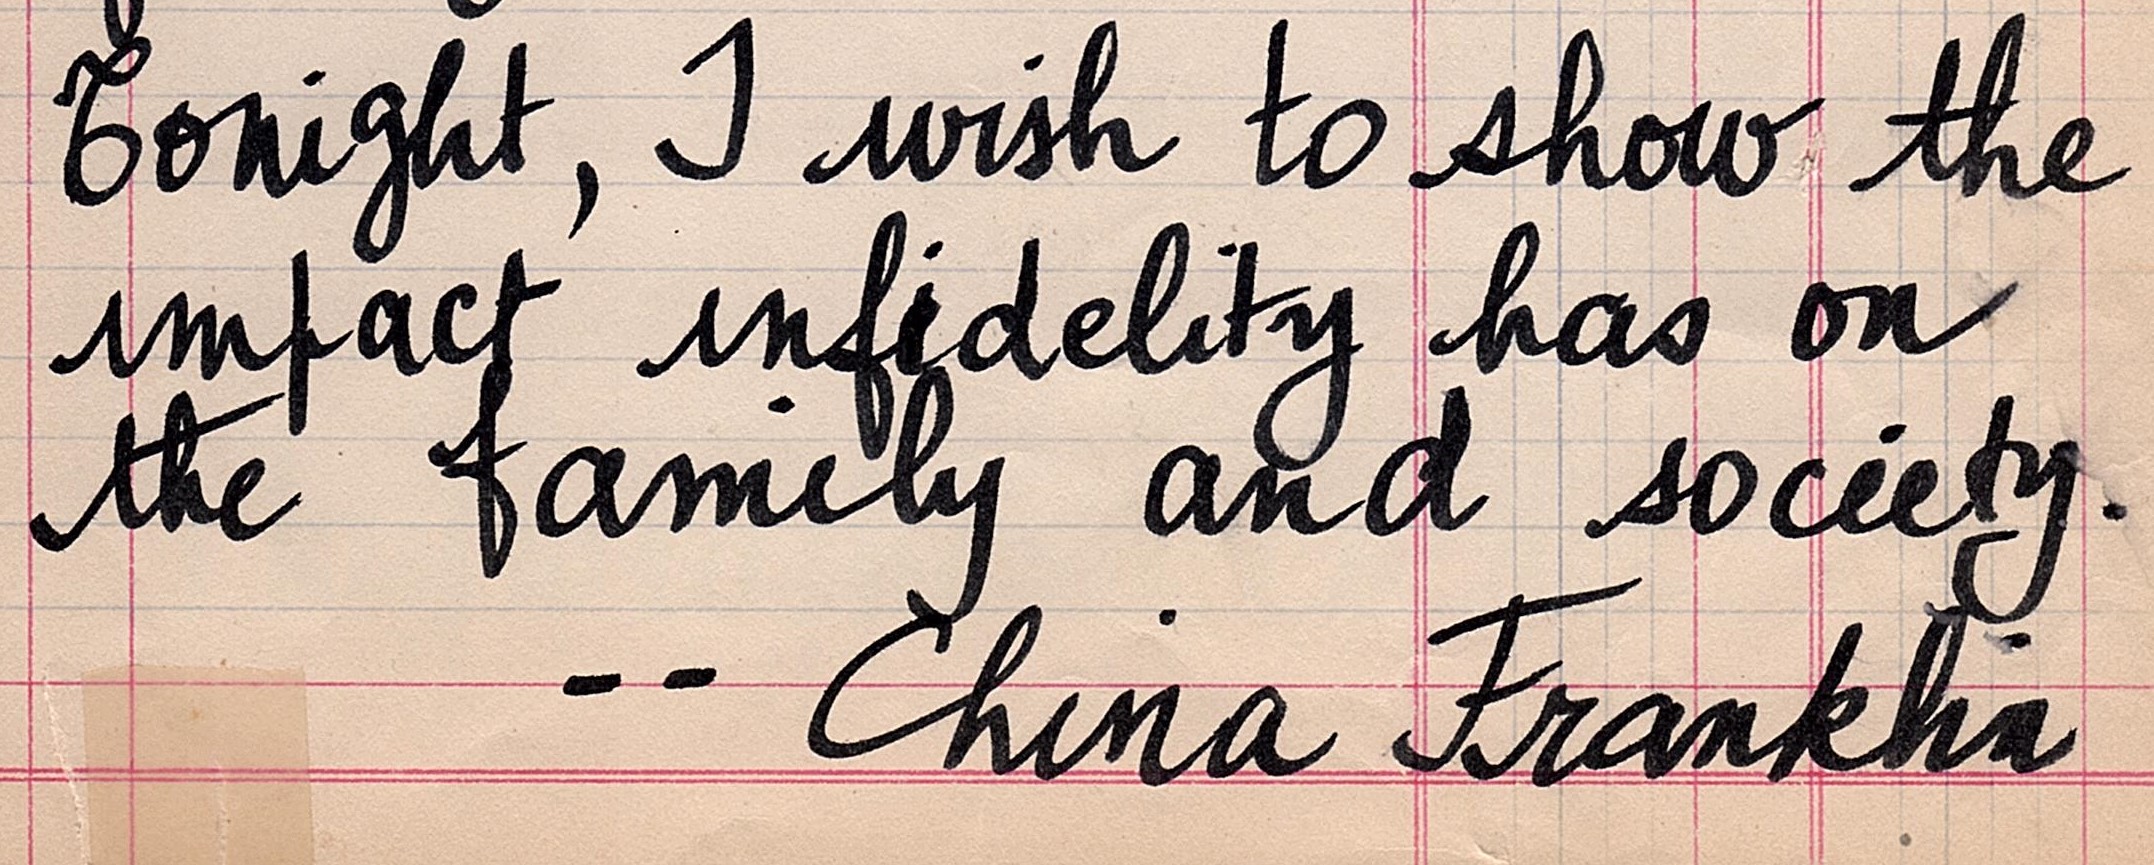 Tonight, I wish to show the
impact infidelity has on
the family and society.
-- China Franklin